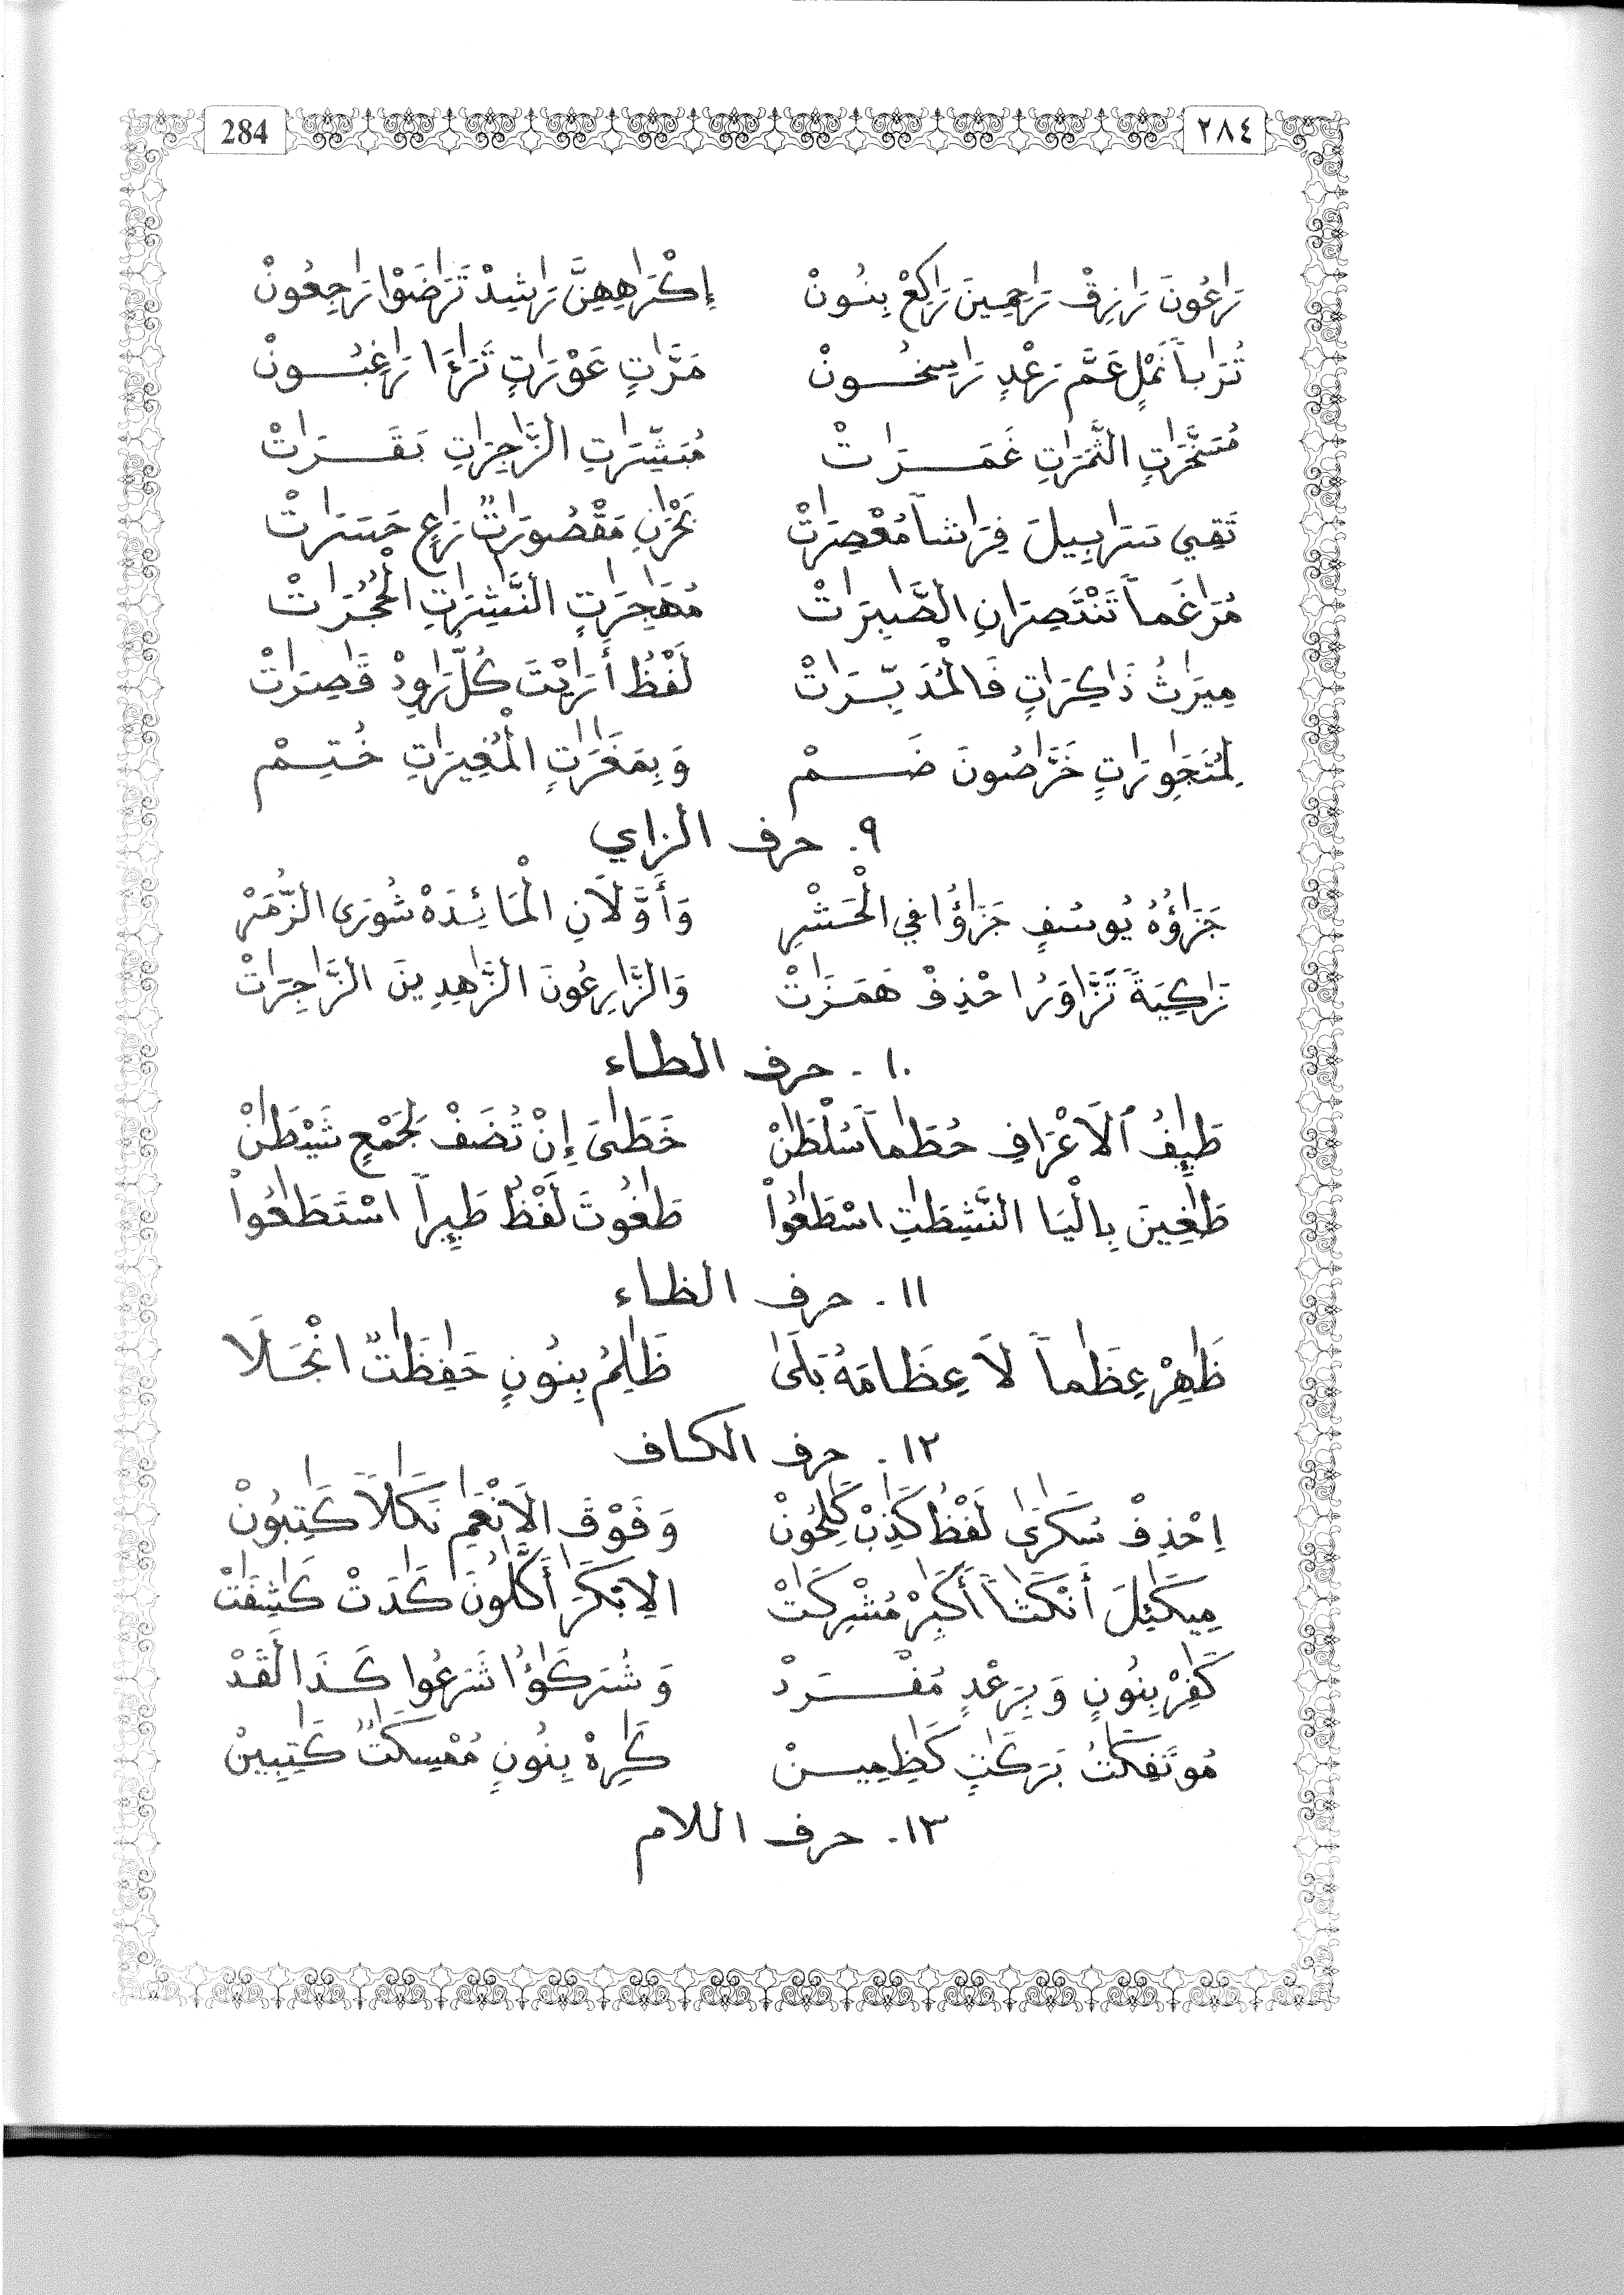 284 ٢٨٤
رَٰعُونَ رَٰزِقْ رَٰحِمِينَ رَٰكِعْ بِنُونْ إِكْرَٰهِهِنَّ رَٰشِدْ تَرَٰضَوْا رَٰجِعُونْ
تُرَٰباً نَمْلٍ عَمَّ رَعْدٍ رَٰسِخُونْ مَرَّٰتٍ عَوْرَٰتٍ تَرَٰءَا رَٰغِبُونْ
مُسَخَّرَٰتٍ الثَّمَرَٰتِ غَمَرَٰتْ مُبَشِّرَٰتِ الزَّٰجِرَٰتِ بَقَرَٰتْ
تَقِي سَرَٰبِيلَ فِرَٰشاً مُعْصِرَٰتْ بَحْرَٰنِ مَقْصُورَٰتٌ رَٰعِ حَسَرَٰتْ
مُرَٰغَماً تَنْتَصِرَٰنِ الصَّٰبِرَٰتْ مُهَٰجِرَٰتٍ النَّٰشِرَٰتِ الْحُجُرَٰتْ
مِيرَٰثُ ذَٰكِرَٰتٍ فَالْمُدَبِّرَٰتْ لَفْظُ أَرَٰيْتَ كُلَّ رَٰوِدْ قَٰصِرَٰتْ
لِمُتَجَٰوِرَٰتٍ خَرَّٰصُونَ ضَمْ وَبِمَغَٰرَٰتٍ الْمُغِيرَٰتِ خُتِمْ
٩. حرف الزاي
جَزَٰؤُهُ يُوسُفٍ جَزَٰؤُا فِي الْحَشْرِ وَأَوَّلَانِ الْمَائِدَهْ شُورَى الزُّمَرْ
زَٰكِيَةً تَزَّٰوَرُ احْذِفْ هَمَزَٰتْ وَالزَّٰرِعُونَ الزَّٰهِدِينَ الزَّٰجِرَٰتْ
١٠. حرف الطاء
طَٰئِفُ الَاعْرَافِ حُطَٰماً سُلْطَٰنْ خَطَٰىَ إِنْ تُضَفْ لِجَمْعٍ شَيْطَٰنْ
طَٰغِينَ بِالْيَا النَّٰشِطَٰتِ اسْطَٰعُواْ طَٰغُوتَ لَفْظُ طَٰئِراً اسْتَطَٰعُواْ
١١. حرف الظاء
ظَٰهِرْ عِظَٰماً لَا عِظَامَهُ بَلَىٰ ظَٰلِمُ بِنُونٍ حَٰفِظَٰتٌ انْجَلَا
١٢. حرف الكاف
اِحْذِفْ سُكَٰرَىٰ لَفْظُ كَٰذِبْ كَٰلِحُونْ وَفَوْقَ الَانْعَٰمِ نَكَٰلاً كَٰتِبُونْ
مِيكَٰئِلَ أَنْكَٰثاً أَكَٰبِرْ مُشْرِكَٰتْ الِابْكَٰرَ أَكَّٰلُونَ كَٰدَتْ كَٰشِفَٰتْ
كَٰفِرْ بِنُونٍ وَبِرَعْدٍ مُفْرَدْ وَشُرَكَٰؤُا شَرَعُوا كَذَا لَقَدْ
مُوتَفِكَٰتُ بَرَكَٰتٍ كَٰظِمِينْ كَٰرِهْ بِنُونٍ مُمْسِكَٰتٌ كَٰتِبِينْ
١٣. حرف اللام